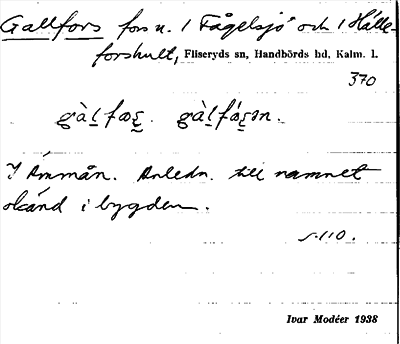 Gallfors fors n. 1 Fågelsjö och 1 Hälle-
forshult, Fliseryds sn, Handbörds hd, Kalm. l.
370
gàl̠fæʂ. gàl̠fǻʂən.
I Ämmån. Anledn. till namnet
okänd i bygden.
s. 110.
Ivar Modéer 1938